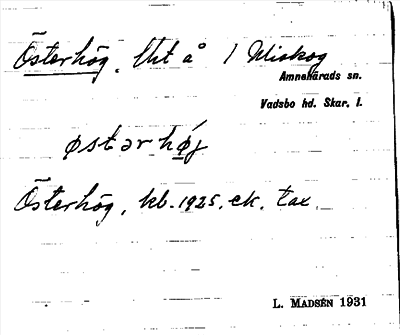 Österhög. Uht å 1 Miskog
Amnehärads sn.
Vadsbo hd. Skar. l.
østərhǿj
Österhög, kb. 1925. ek. tax.
L. MADSÉN 1931